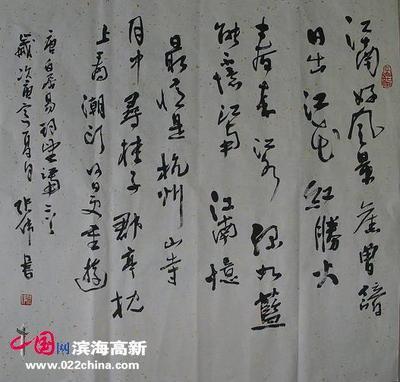 江南好风景舊曾諳
日出江花紅勝火
春来江水绿如藍
能憶江南 江南憶
最憶是杭州山寺
月中尋桂子郡亭枕
上看潮頭何日更重遊
唐白居易
歲次 夏日 書
中国网 滨海高新
www.022china.com